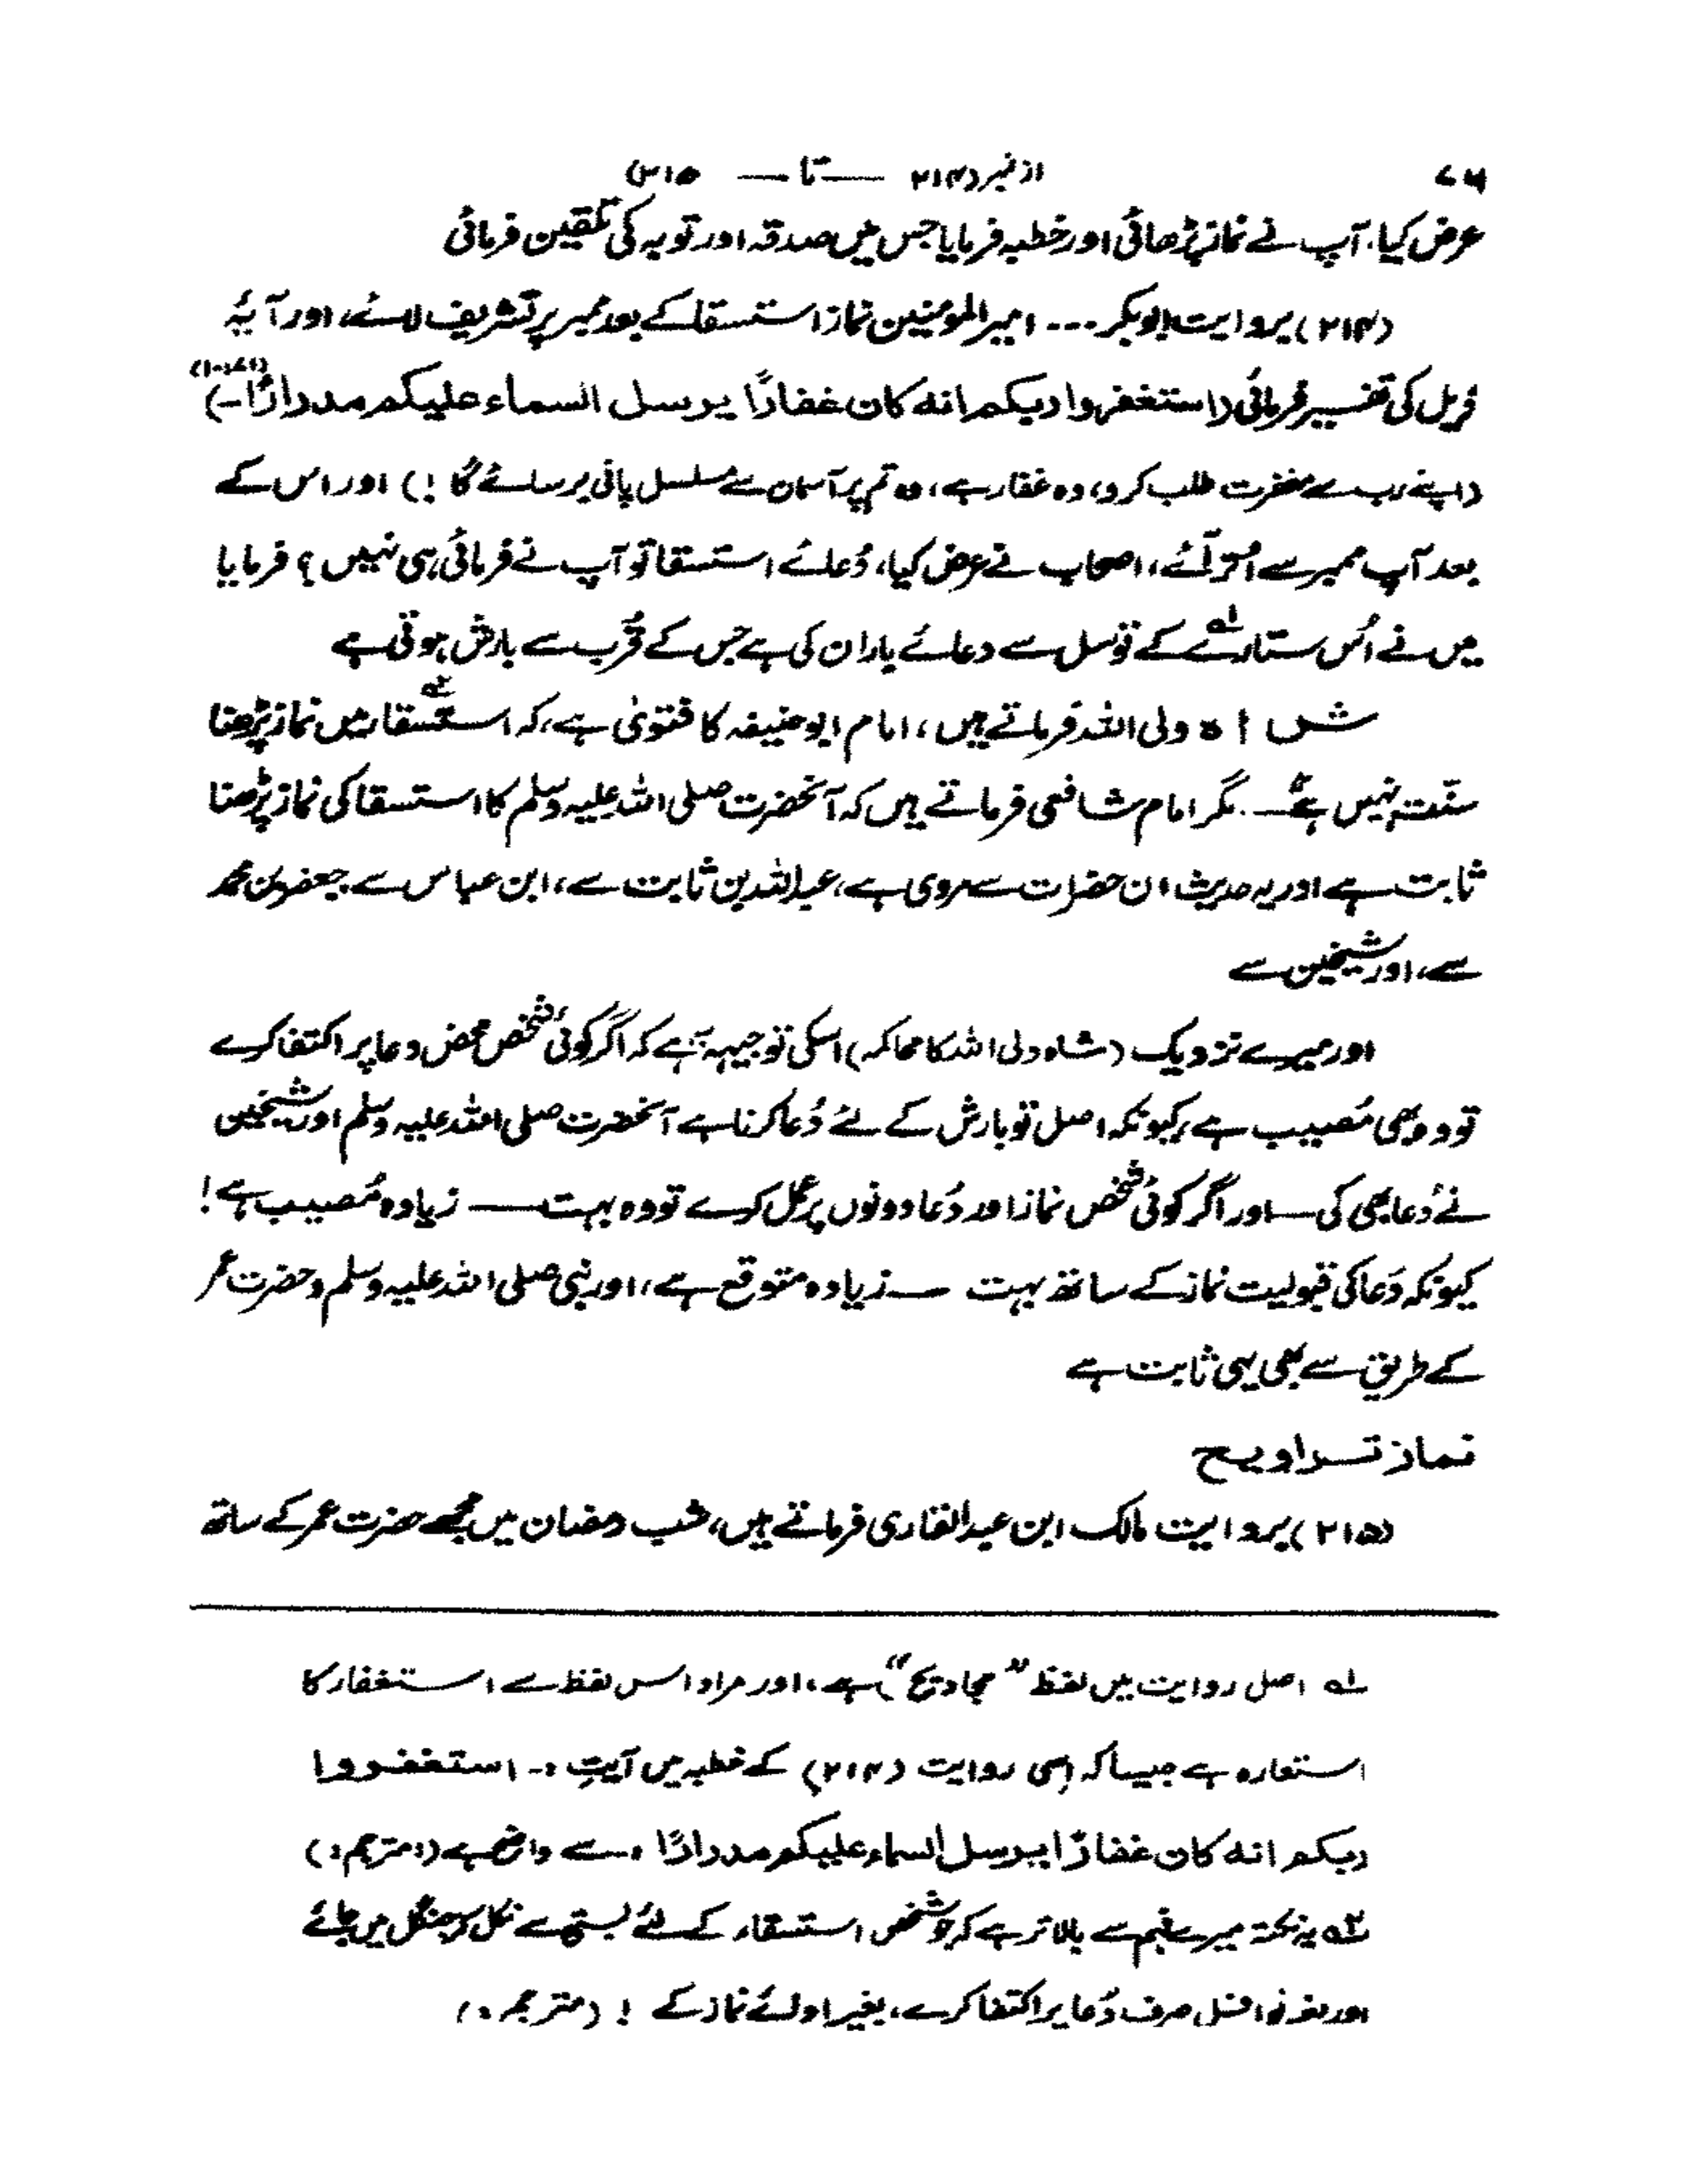 ۷۶ از نمبر (۲۱۴ — تا — ۲۱۵)
عرض کیا، آپ نے نماز پڑھائی اور خطبہ فرمایا جس میں صدقہ اور توبہ کی تلقین فرمائی
(۲۱۴) بروایت ابوبکر... امیرالمومنین نماز استسقا کے بعد ممبر پر تشریف لائے، اور آیۂ
ذیل کی تفسیر فرمائی (استغفروا ربکم انہ کان غفارًا یرسل السماء علیکم مدرارًا۔)
(اپنے رب سے مغفرت طلب کرو، وہ غفار ہے، وہ تم پر آسمان سے مسلسل پانی برسائے گا!) اور اس کے
بعد آپ ممبر سے اُتر آئے، اصحاب نے عرض کیا، دُعائے استسقا تو آپ نے فرمائی ہی نہیں؟ فرمایا
میں نے اُس ستارے لہ کے توسل سے دعائے باران کی ہے جس کے قُرب سے بارش ہوتی ہے
شاہ ولی اللہ فرماتے ہیں، امام ابوحنیفہ کا فتویٰ ہے، کہ استسقا میں نماز پڑھنا
سنّت نہیں ہے — مگر امام شافعی فرماتے ہیں کہ آنحضرت صلی اللہ علیہ وسلم کا استسقا کی نماز پڑھنا
ثابت ہے اور یہ حدیث ان حضرات سے مروی ہے، عبداللہ بن ثابت سے، ابن عباس سے جعفر بن محمد
سے، اور شیخین سے
اور میرے نزدیک (شاہ ولی اللہ کا محاکمہ) اسکی توجیہہ یہ ہے کہ اگر کوئی شخص محض دعا پر اکتفا کرے
تو وہ بھی مُصیب ہے، کیونکہ اصل تو بارش کے لئے دُعا کرنا ہے آنحضرت صلی اللہ علیہ وسلم اور شیخین
نے دُعا بھی کی — اور اگر کوئی شخص نماز اور دُعا دونوں پر عمل کرے تو وہ بہت — زیادہ مُصیب ہے!
کیونکہ دُعا کی قبولیت نماز کے ساتھ بہت — زیادہ متوقع ہے، اور نبی صلی اللہ علیہ وسلم و حضرت عمر
کے طریق سے بھی یہی ثابت ہے
نماز تراویح
(۲۱۵) بروایت مالک ابن عبدالقاری فرماتے ہیں، شب رمضان میں مجھے حضرت عمر کے ساتھ
لہ اصل روایت میں لفظ "مجادیح" ہے، اور مراد اس لفظ سے استغفار کا
استعارہ ہے جیسا کہ اسی روایت (۲۱۴) کے خطبہ میں آیتِ :۔ استغفروا
ربکم انہ کان غفارًا یرسل السماء علیکم مدرارًا۔ سے واضح ہے (:مترجم:)
۲ہ یہ نکتہ میرے فہم سے بالاتر ہے کہ جو شخص استسقاء کے لئے بستی سے نکل کر جنگل میں جائے
اور صرف دُعا پر اکتفا کرے، بغیر ادائے نماز کے! (مترجم:)